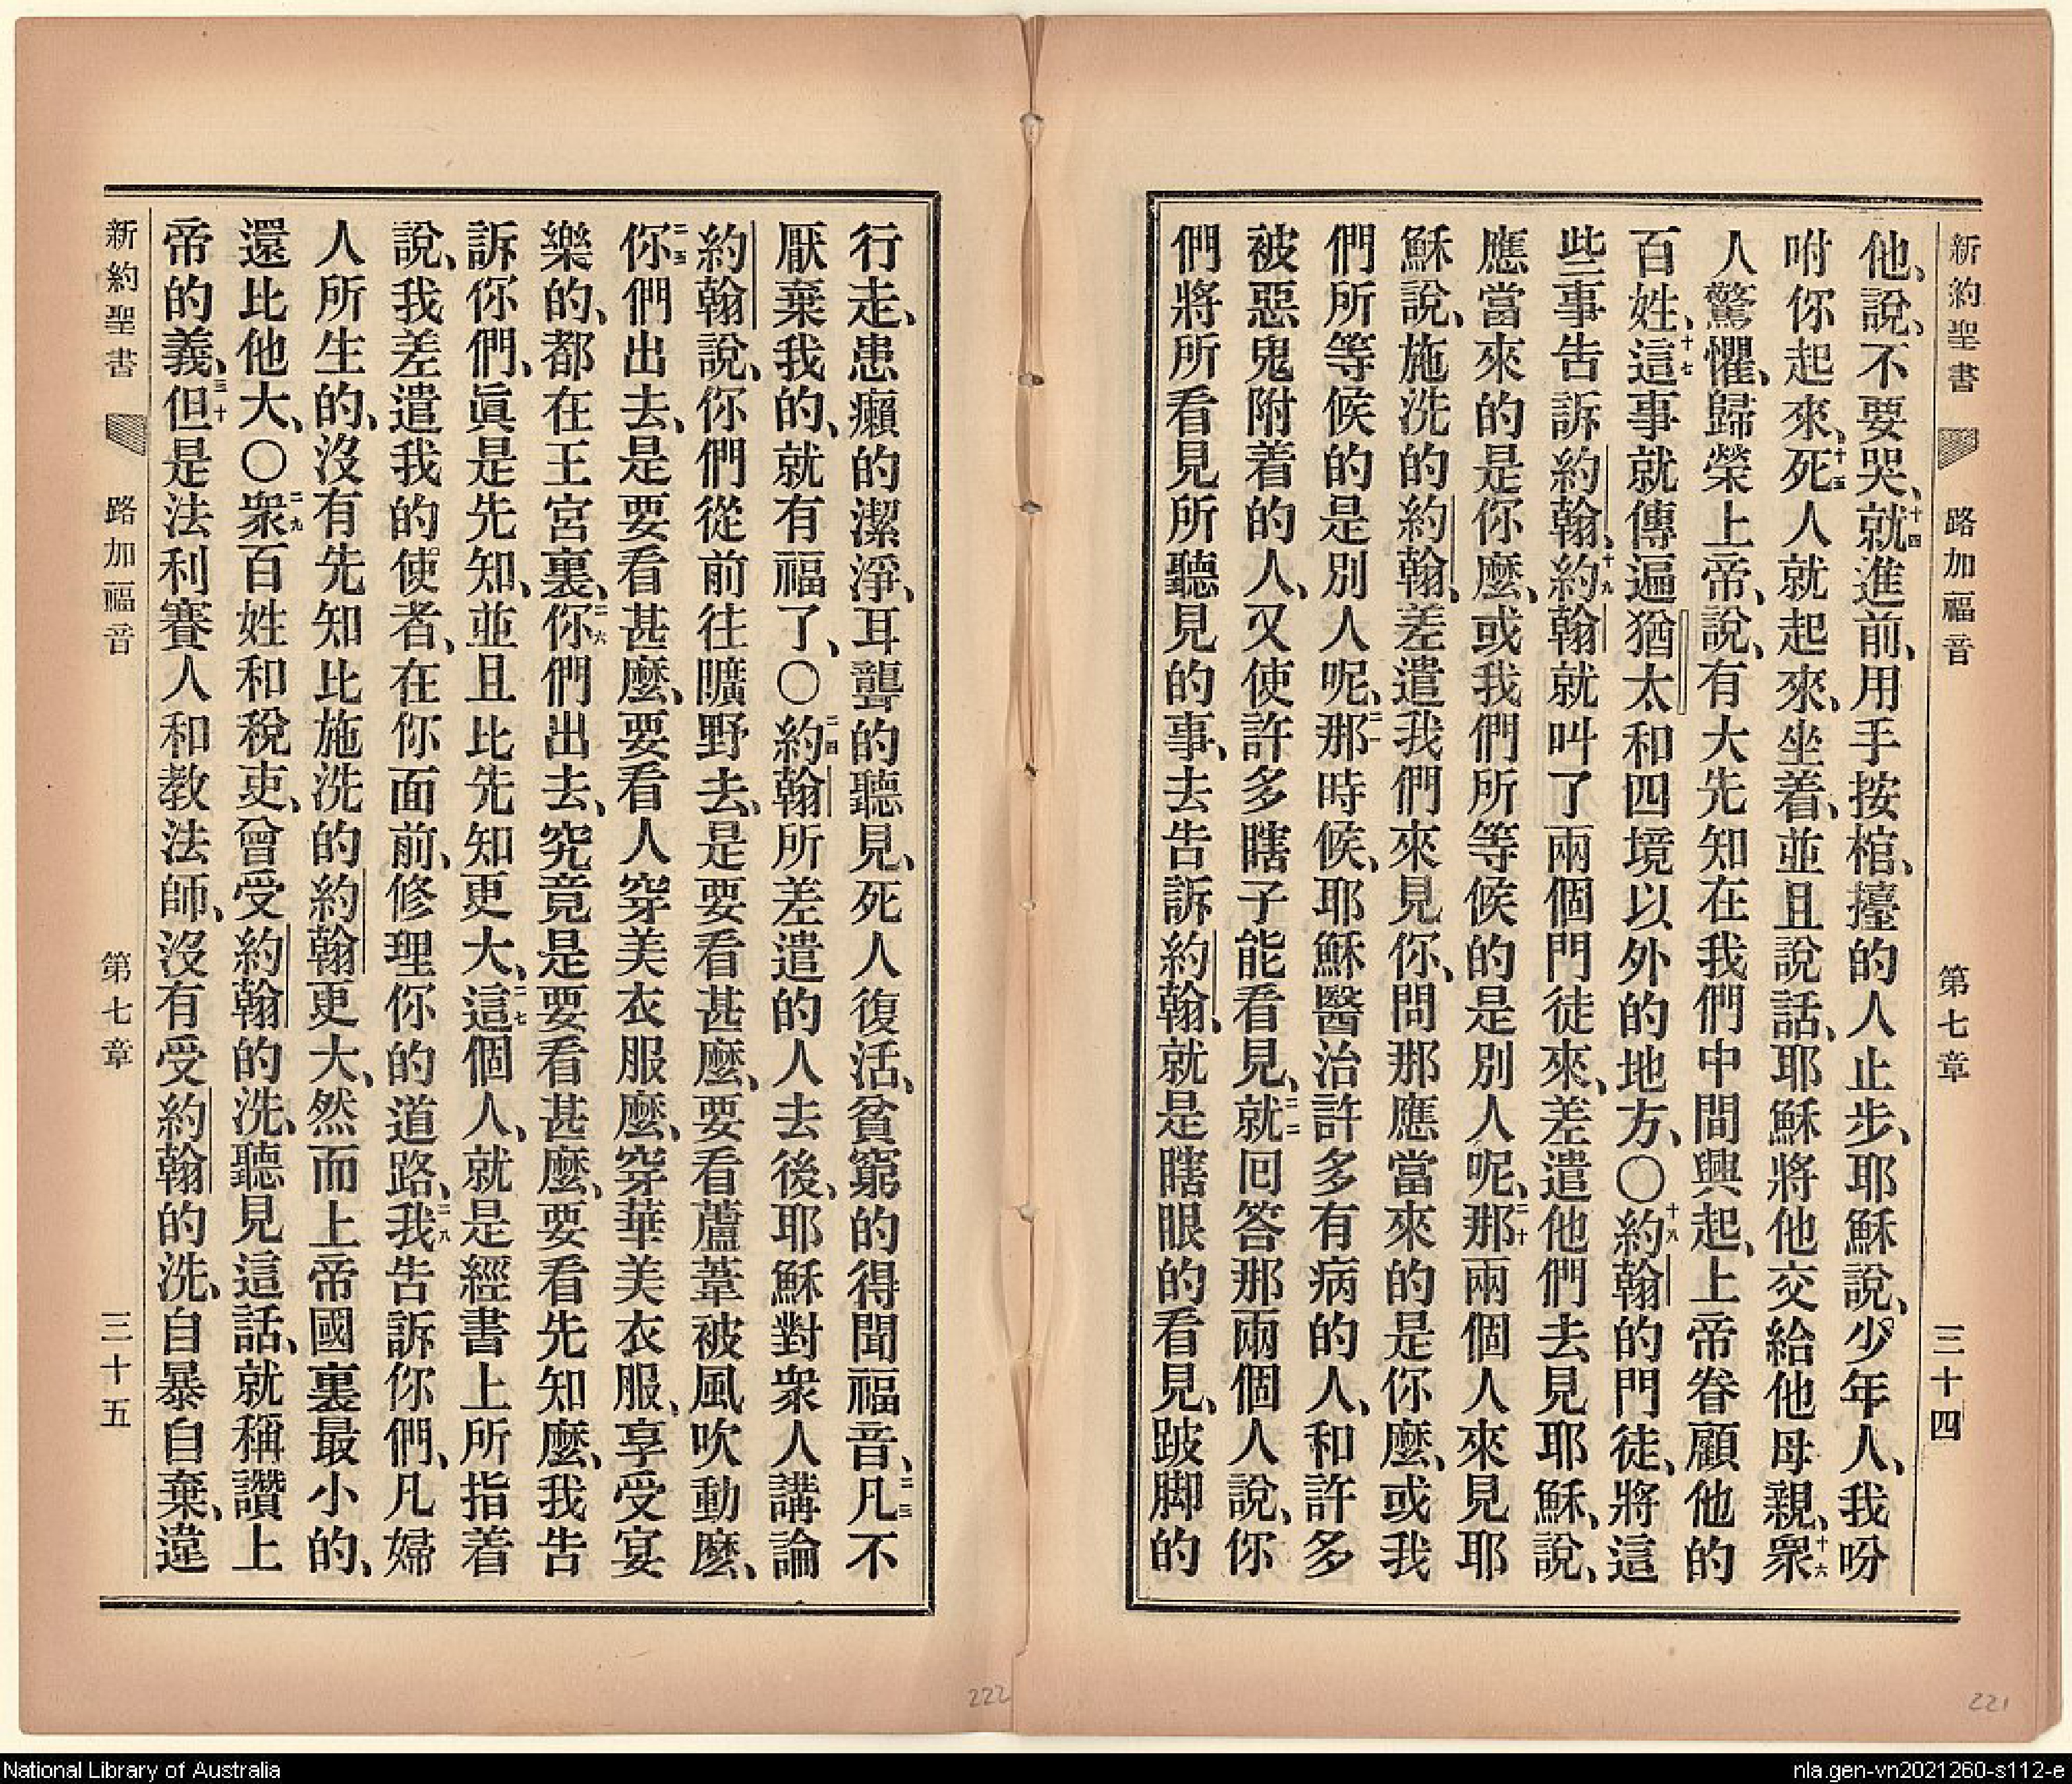 新約聖書 路加福音 第七章 三十四
他、說、不要哭、十四就進前、用手按棺、擡的人止步、耶穌說、少年人、我吩
咐你起來、十五死人就起來、坐着、並且說話、耶穌將他交給他母親、十六衆
人驚懼、歸榮上帝、說、有大先知在我們中間興起、上帝眷顧他的
百姓、十七這事就傳遍猶太和四境以外的地方、〇十八約翰的門徒、將這
些事告訴約翰、十九約翰就叫了兩個門徒來、差遣他們去見耶穌、說、
應當來的是你麼、或我們所等候的是別人呢、二十那兩個人來見耶
穌、說、施洗的約翰、差遣我們來見你、問那應當來的是你麼、或我
們所等候的是別人呢、二一那時候、耶穌醫治許多有病的人、和許多
被惡鬼附着的人、又使許多瞎子能看見、二二就回答那兩個人說、你
們將所看見所聽見的事、去告訴約翰、就是瞎眼的看見、跛脚的
行走、患癩的潔淨、耳聾的聽見、死人復活、貧窮的得聞福音、二三凡不
厭棄我的、就有福了、〇二四約翰所差遣的人去後、耶穌對衆人講論
約翰說、你們從前往曠野去、是要看甚麼、要看蘆葦被風吹動麼、
二五你們出去、是要看甚麼、要看人穿美衣服麼、穿華美衣服、享受宴
樂的、都在王宮裏、二六你們出去、究竟是要看甚麼、要看先知麼、我告
訴你們、眞是先知、並且比先知更大、二七這個人、就是經書上所指着
說、我差遣我的使者、在你面前、修理你的道路、二八我告訴你們、凡婦
人所生的、沒有先知比施洗的約翰更大、然而上帝國裏最小的、
還比他大、〇二九衆百姓和稅吏、曾受約翰的洗、聽見這話、就稱讚上
帝的義、三十但是法利賽人和教法師、沒有受約翰的洗、自暴自棄、違
新約聖書 路加福音 第七章 三十五
222
221
National Library of Australia
nla.gen-vn2021260-s112-e